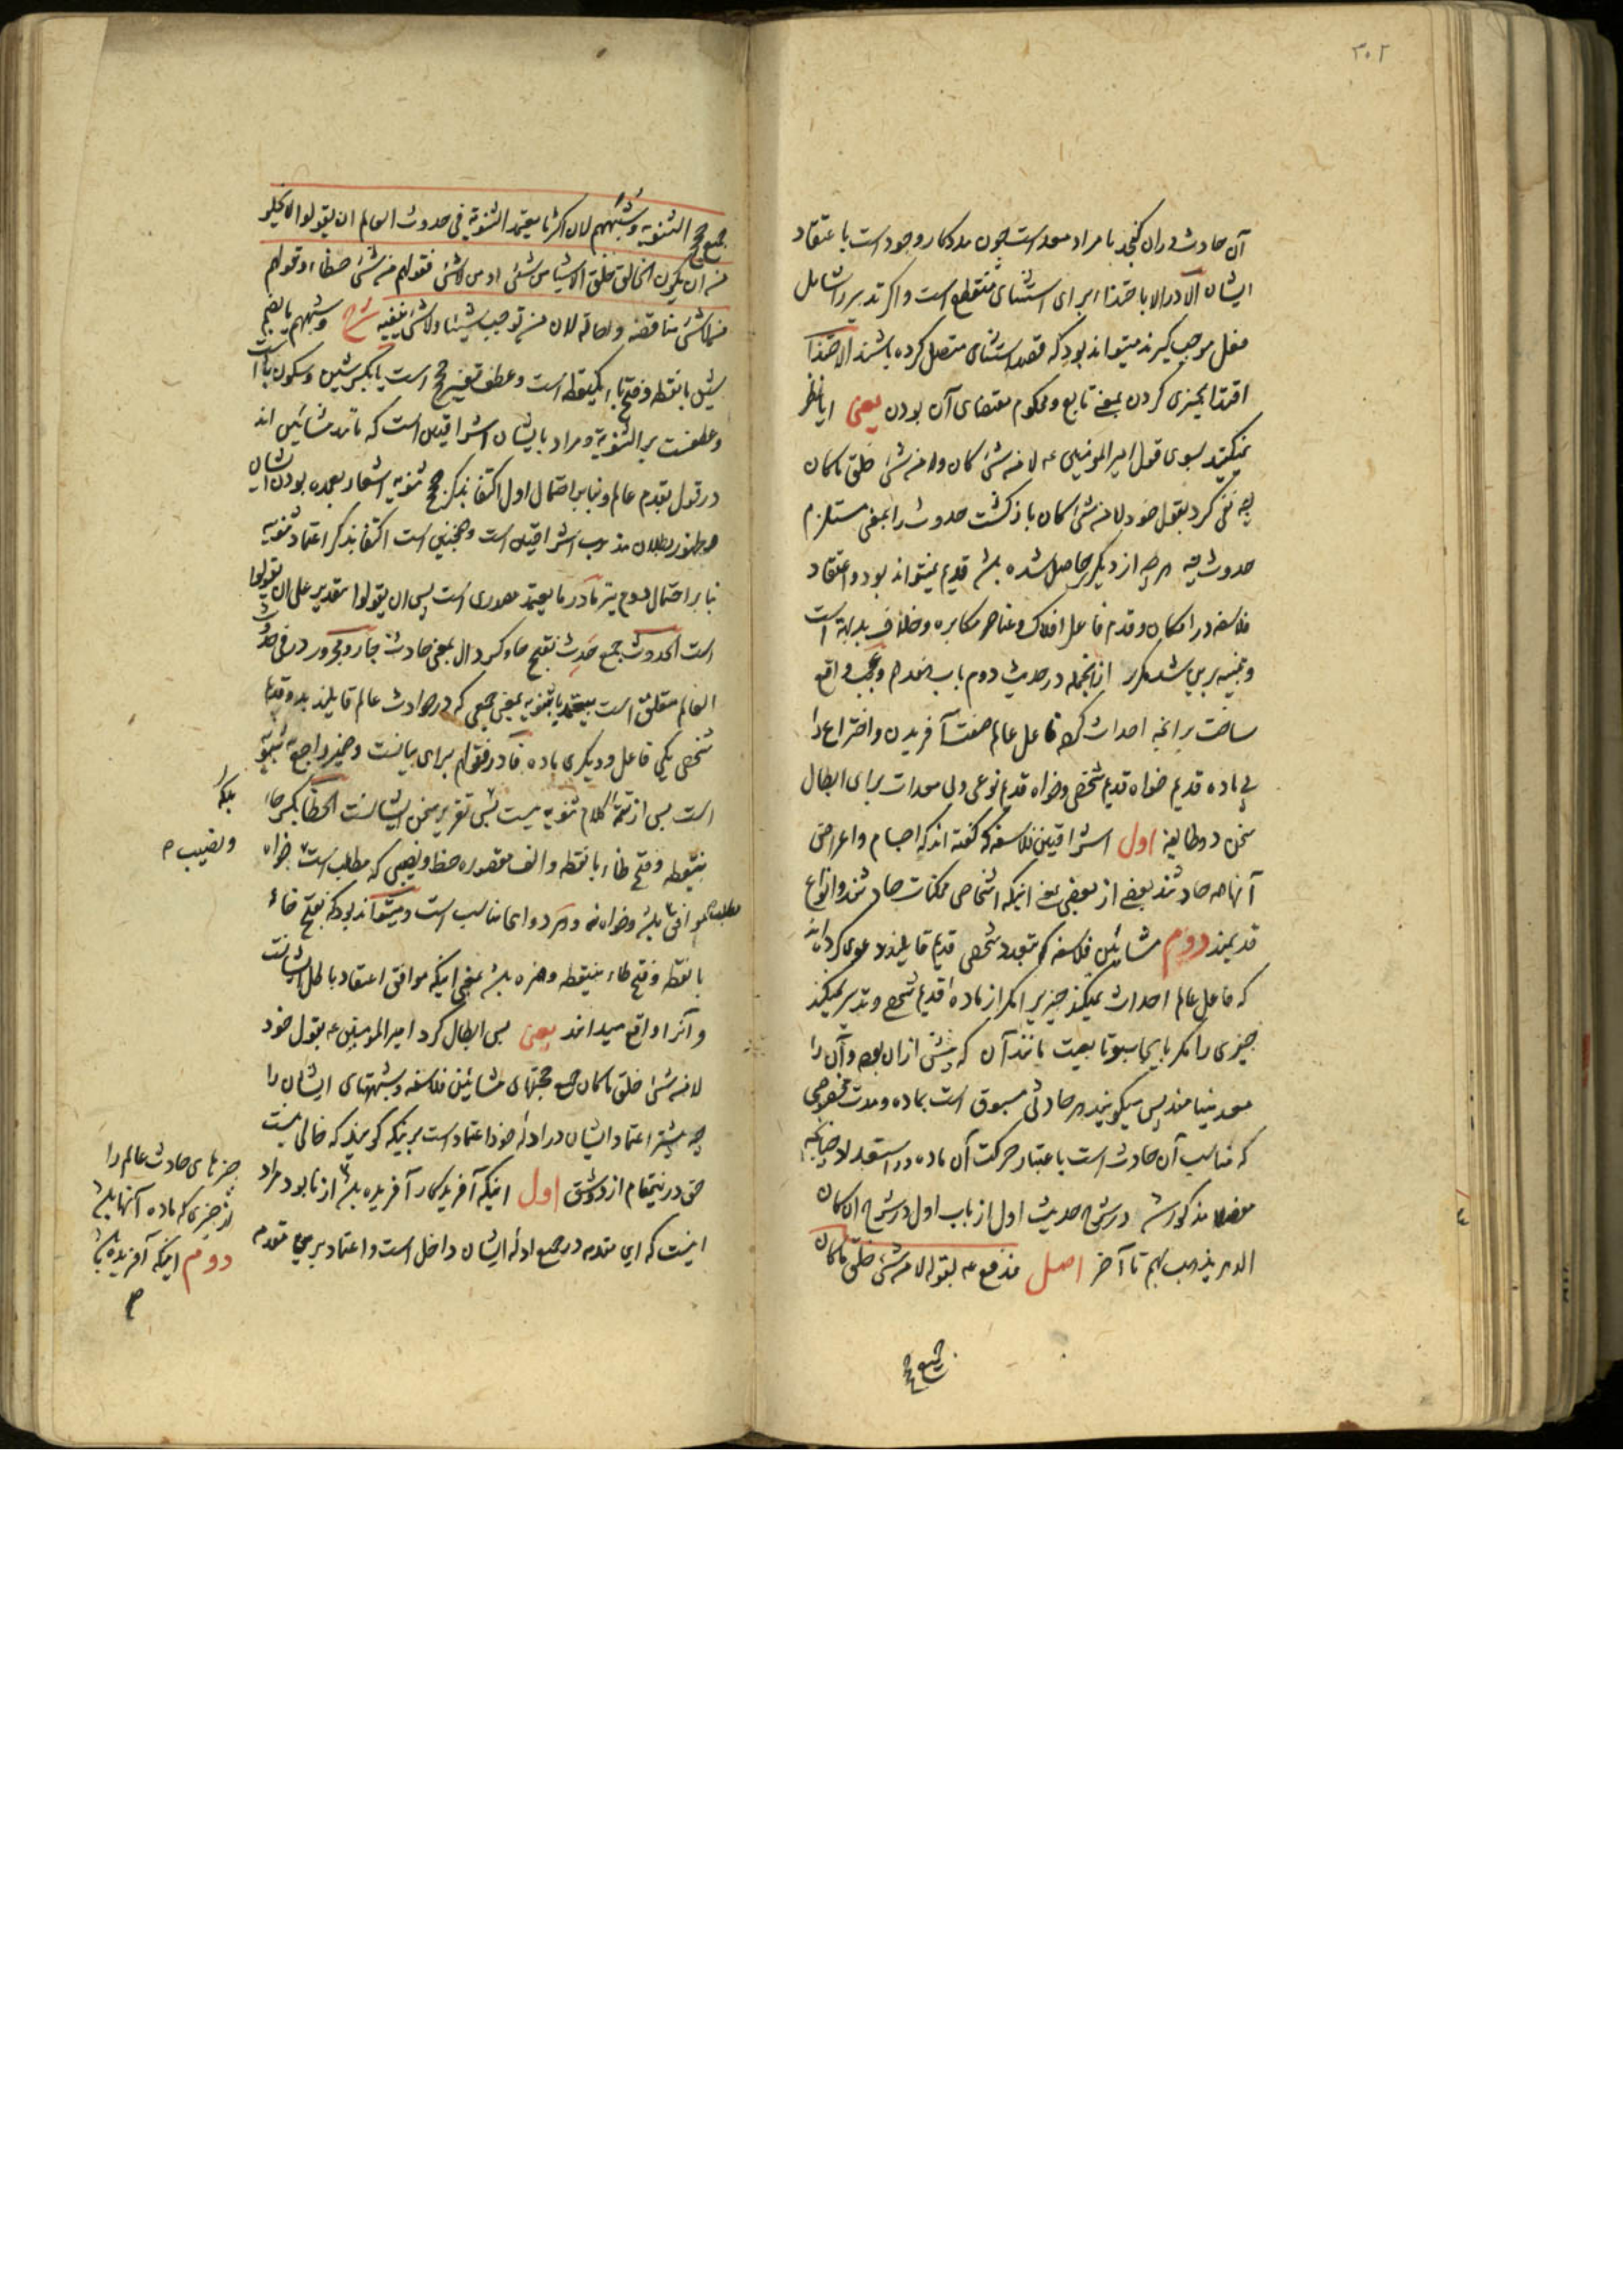 ٣٠٢
آن حادث در آن گنجد یا مراد معد است چون مددکار وجود است باعتقاد
ایشان الا در الا باحتذاء برای استثنای منقطع است و اگر تدبیر را شامل
فعل موجب گیرند میتواند بود که قصد استثنای متصل کرده باشند الاحتذا
اقتدا بچیزی کردن بمعنی تابع و محکوم مقتضای آن بودن یعنی آیا نظر
نمیکنید بسوی قول امیرالمؤمنین ع لا من شیٔ کان ولا من شیٔ خلق ماکان
چه نفی کرد بقول خود لا من شیٔ کان بازگشت حدوث را بمعنی مستلزم
حدوث چه هرچه از دیگر حاصل شده باشد قدیم نمیتواند بود و اعتقاد
فلاسفه در امکان و قدم فاعل افلاک و عناصر مکابره و خلاف بدیهه است
و تنبیه برین شد مکرر ازانجمله در حدیث دوم باب و واقع
ساخت برانچه احداث کرده فاعل عالم صفت آفریدن و اختراع را
بی ماده قدیم خواه قدیم شخصی و خواه قدیم نوعی ولی معدات برای ابطال
سخن دو طایفه اول اشراقیین فلاسفه که گفته اند که اجسام و اعراض
آنها همه حادثند بعضی از بعضی بمعنی اینکه اشخاص ممکنات حادثند و انواع
قدیمند دوم مشائین فلاسفه که بتعدد شخصی قدیم قایلند و دعوی کرده اند
که فاعل عالم احداث نمیکند چیزیرا مگر از ماده قدیم شخصی و تدبیر نمیکند
چیزی را مگر بایجاب و تابعیت مانند آن که پیش از آن بوده و آن را
معد مینامند پس میگویند هر حادثی مسبوق است بماده و مدت مخصوصی
که مناسب آن حادث است باعتبار حرکت آن ماده در استعداد چنانچه
مفصلا مذکور شد در شرح حدیث اول از باب اول در شرح ان کان
الدهر یذهب بهم تا آخر اصل فدفع ع بقوله لا من شیٔ خلق ماکان
جمیع حجج
جمیع حجج الثنویة و شبههم لان اکثر ما یعتمد الثنویة فی حدوث العالم ان یقولوا لا یخلو
من ان یکون الخالق خلق الاشیا من شیٔ او من لا شیٔ فقولهم من شیٔ خطاء و قولهم
من لا شیٔ مناقضة و احالة لان من توجب شیئا و لا شیٔ ینفیه شرح و شبههم یا بضم
شین بانقطه و فتح باء یکنقطه است و عطف تفسیر حجج است یا بکسر شین و سکون باء است
و عطفست بر الثنویة و مراد بایشان اشراقیین است که مانند مشائین اند
در قول بقدم عالم و بنابر احتمال اول اکتفا بذکر حجج ثنویه اشعار بعمده بودن ایشان
و ظهور بطلان مذهب اشراقیین است و همچنین است اکتفا بذکر اعتماد ثنویه
بنابر احتمال دوم نیز ما در ما یعتمد مصدری است پس ان یقولوا بتقدیر علی ان یقولوا
است الحدوث جمع حدث بفتح حا و کسر دال بمعنی حادث جار و مجرور در فی حدوث
العالم متعلق است بیعتمد یا بثنویه بمعنی جمعی که در حوادث عالم قایلند بدو قدیم
شخصی یکی فاعل و دیگری ماده فا در فقولهم برای بیانست و ضمیر راجع بثنویه
است پس از تتمه کلام ثنویه نیست بلکه تقریر سخن ایشانست الحظا بکسر حاء
بینقطه و فتح ظاء بانقطه و الف مقصوره حظ و نصیبی که مطلب است خواه
موافق مطلب باشد و خواه نه و مراد دوای مناسب است و میتواند بود که بفتح خاء
بانقطه و فتح طاء بینقطه و همزه باشد بمعنی اینکه موافق اعتقاد باطل ایشانست
و آنرا واقع میدانند یعنی پس ابطال کرد امیرالمؤمنین ع بقول خود
لا من شیٔ خلق ماکان جمیع حجتهای مشائین فلاسفه و شبهتهای ایشان را
چه بیشتر اعتماد ایشان در ادلهٔ خود اعتماد است برینکه گویند که خالی نیست
حق درینمقام از دو شق اول اینکه آفریدگار آفریده باشد از نابود مراد
اینست که این مقدمه در جمیع ادلهٔ ایشان داخل است و اعتماد برین مقدمه
بلکه
و نصیب ص
چیزهای حادث عالم را
از چیزی که ماده آنها باشد
دوم اینکه آفریده باشد
ص